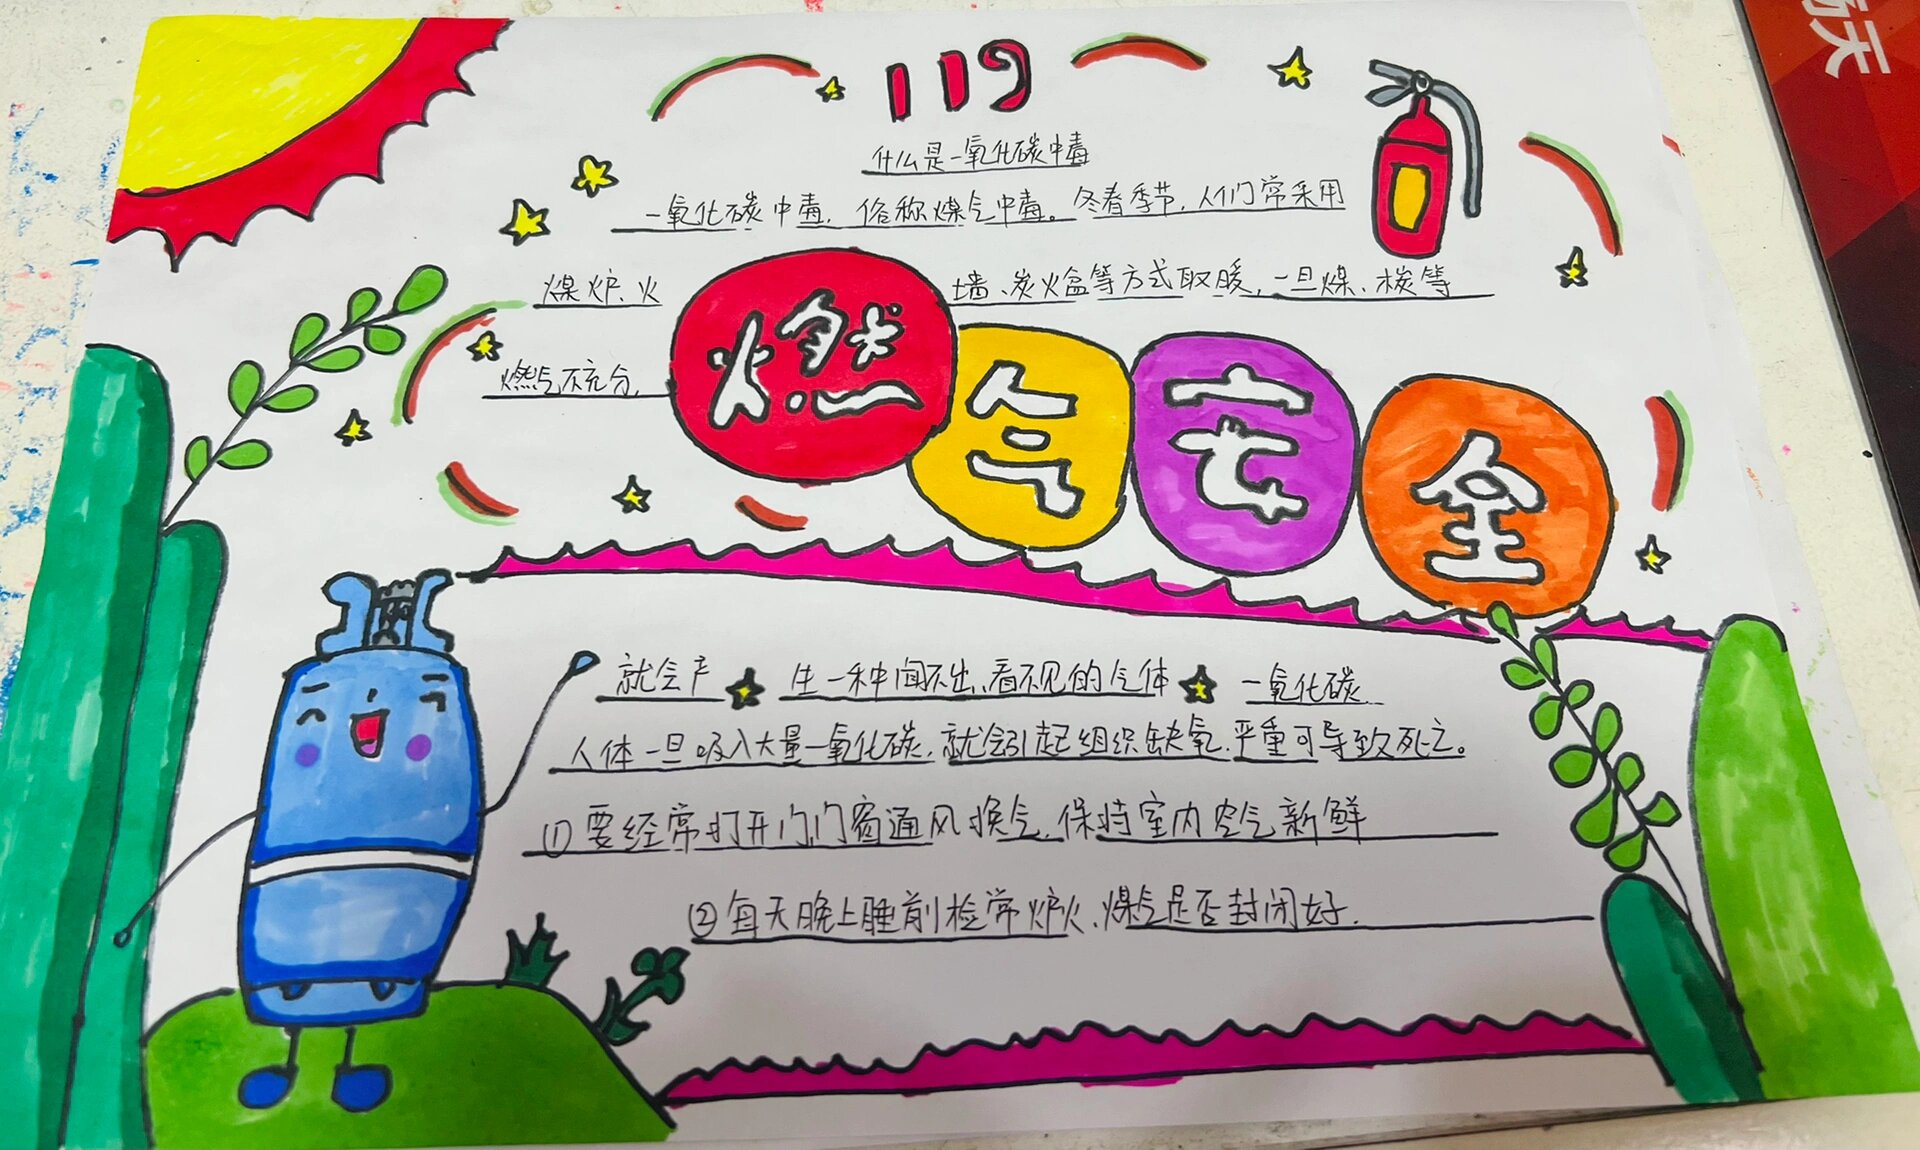 119
什么是一氧化碳中毒
一氧化碳中毒，俗称煤气中毒。冬春季节，人们常采用
煤炉、火墙、炭火盆等方式取暖，一旦煤、炭等
燃气不充分，
燃气安全
就会产生一种闻不出、看不见的气体一氧化碳
人体一旦吸入大量一氧化碳，就会引起组织缺氧，严重可导致死亡。
(1)要经常打开门门窗通风换气，保持室内空气新鲜
②每天晚上睡前检常炉火、煤气是否封闭好.
天